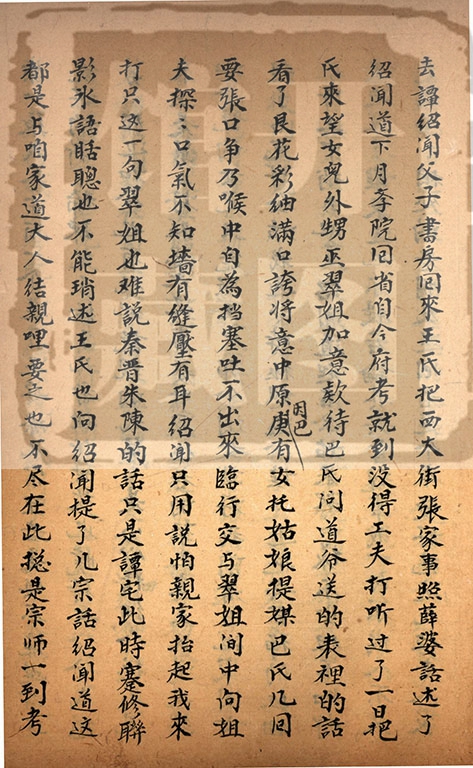 去譚紹聞父子書房回來王氏把西大街張家事照薛婆話述了
紹聞道下月孝院回省咱今府考就到没得工夫打听过了一日把
氏來望女兒外甥巫翠姐加意欵待巴氏问道爷送的表裡的話
看了艮花彩紬满口誇将意中原庚因巴有女托姑娘提媒巴氏几回
要張口争乃喉中自為挡塞吐不出來臨行交与翠姐间中向姐
夫探〻口氣不知墻有縫壓有耳紹聞只用説怕親家抬起我來
打只这一句翠姐也难説秦晋朱陳的話只是譚宅此時蹇修聯
影氷語聒聰也不能瑣述王氏也向紹聞提了几宗話紹聞道这
都是与咱家道大人結親哩要之也不尽在此捴是宗师一到考
舘图
藏